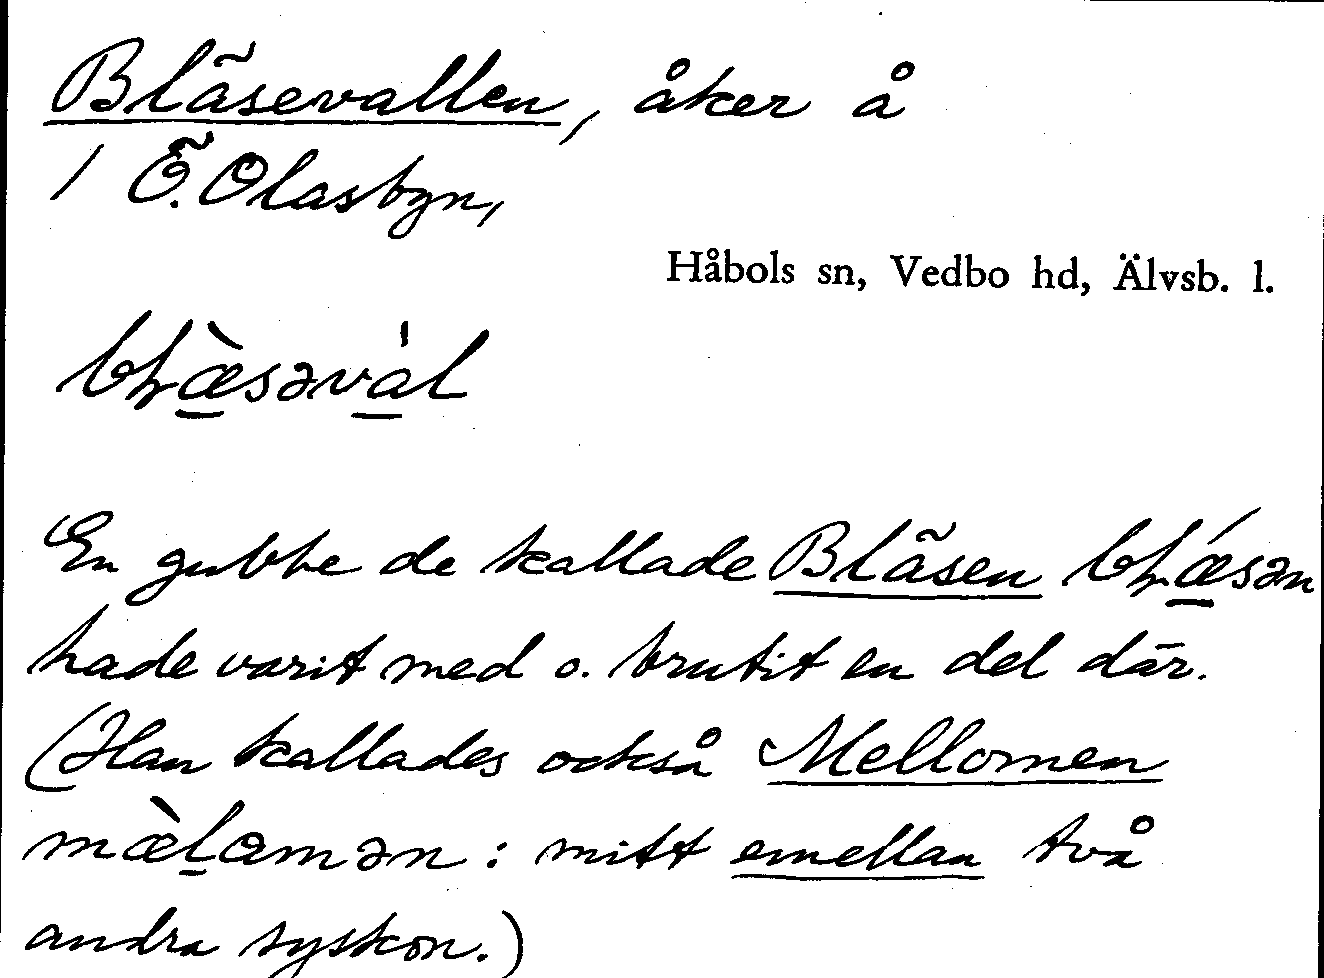 Bläsevallen, åker å
1 Ö. Olasbyn,
Håbols sn, Vedbo hd, Älvsb. l.
En gubbe de kallade Bläsen
hade varit med o. brutit en del där.
(Han kallades också Mellomen
: mitt emellan två
andra syskon.)